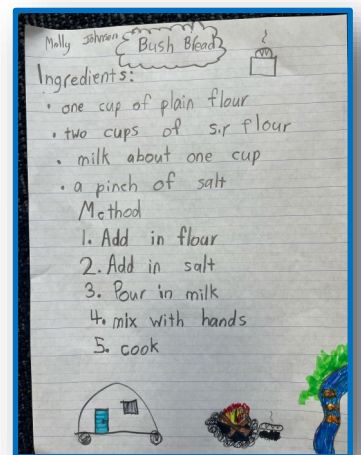 Molly Johnson
Bush Bread
Ingredients:
• one cup of plain flour
• two cups of s.r flour
• milk about one cup
• a pinch of salt
Method
1. Add in flour
2. Add in salt
3. Pour in milk
4. mix with hands
5. cook